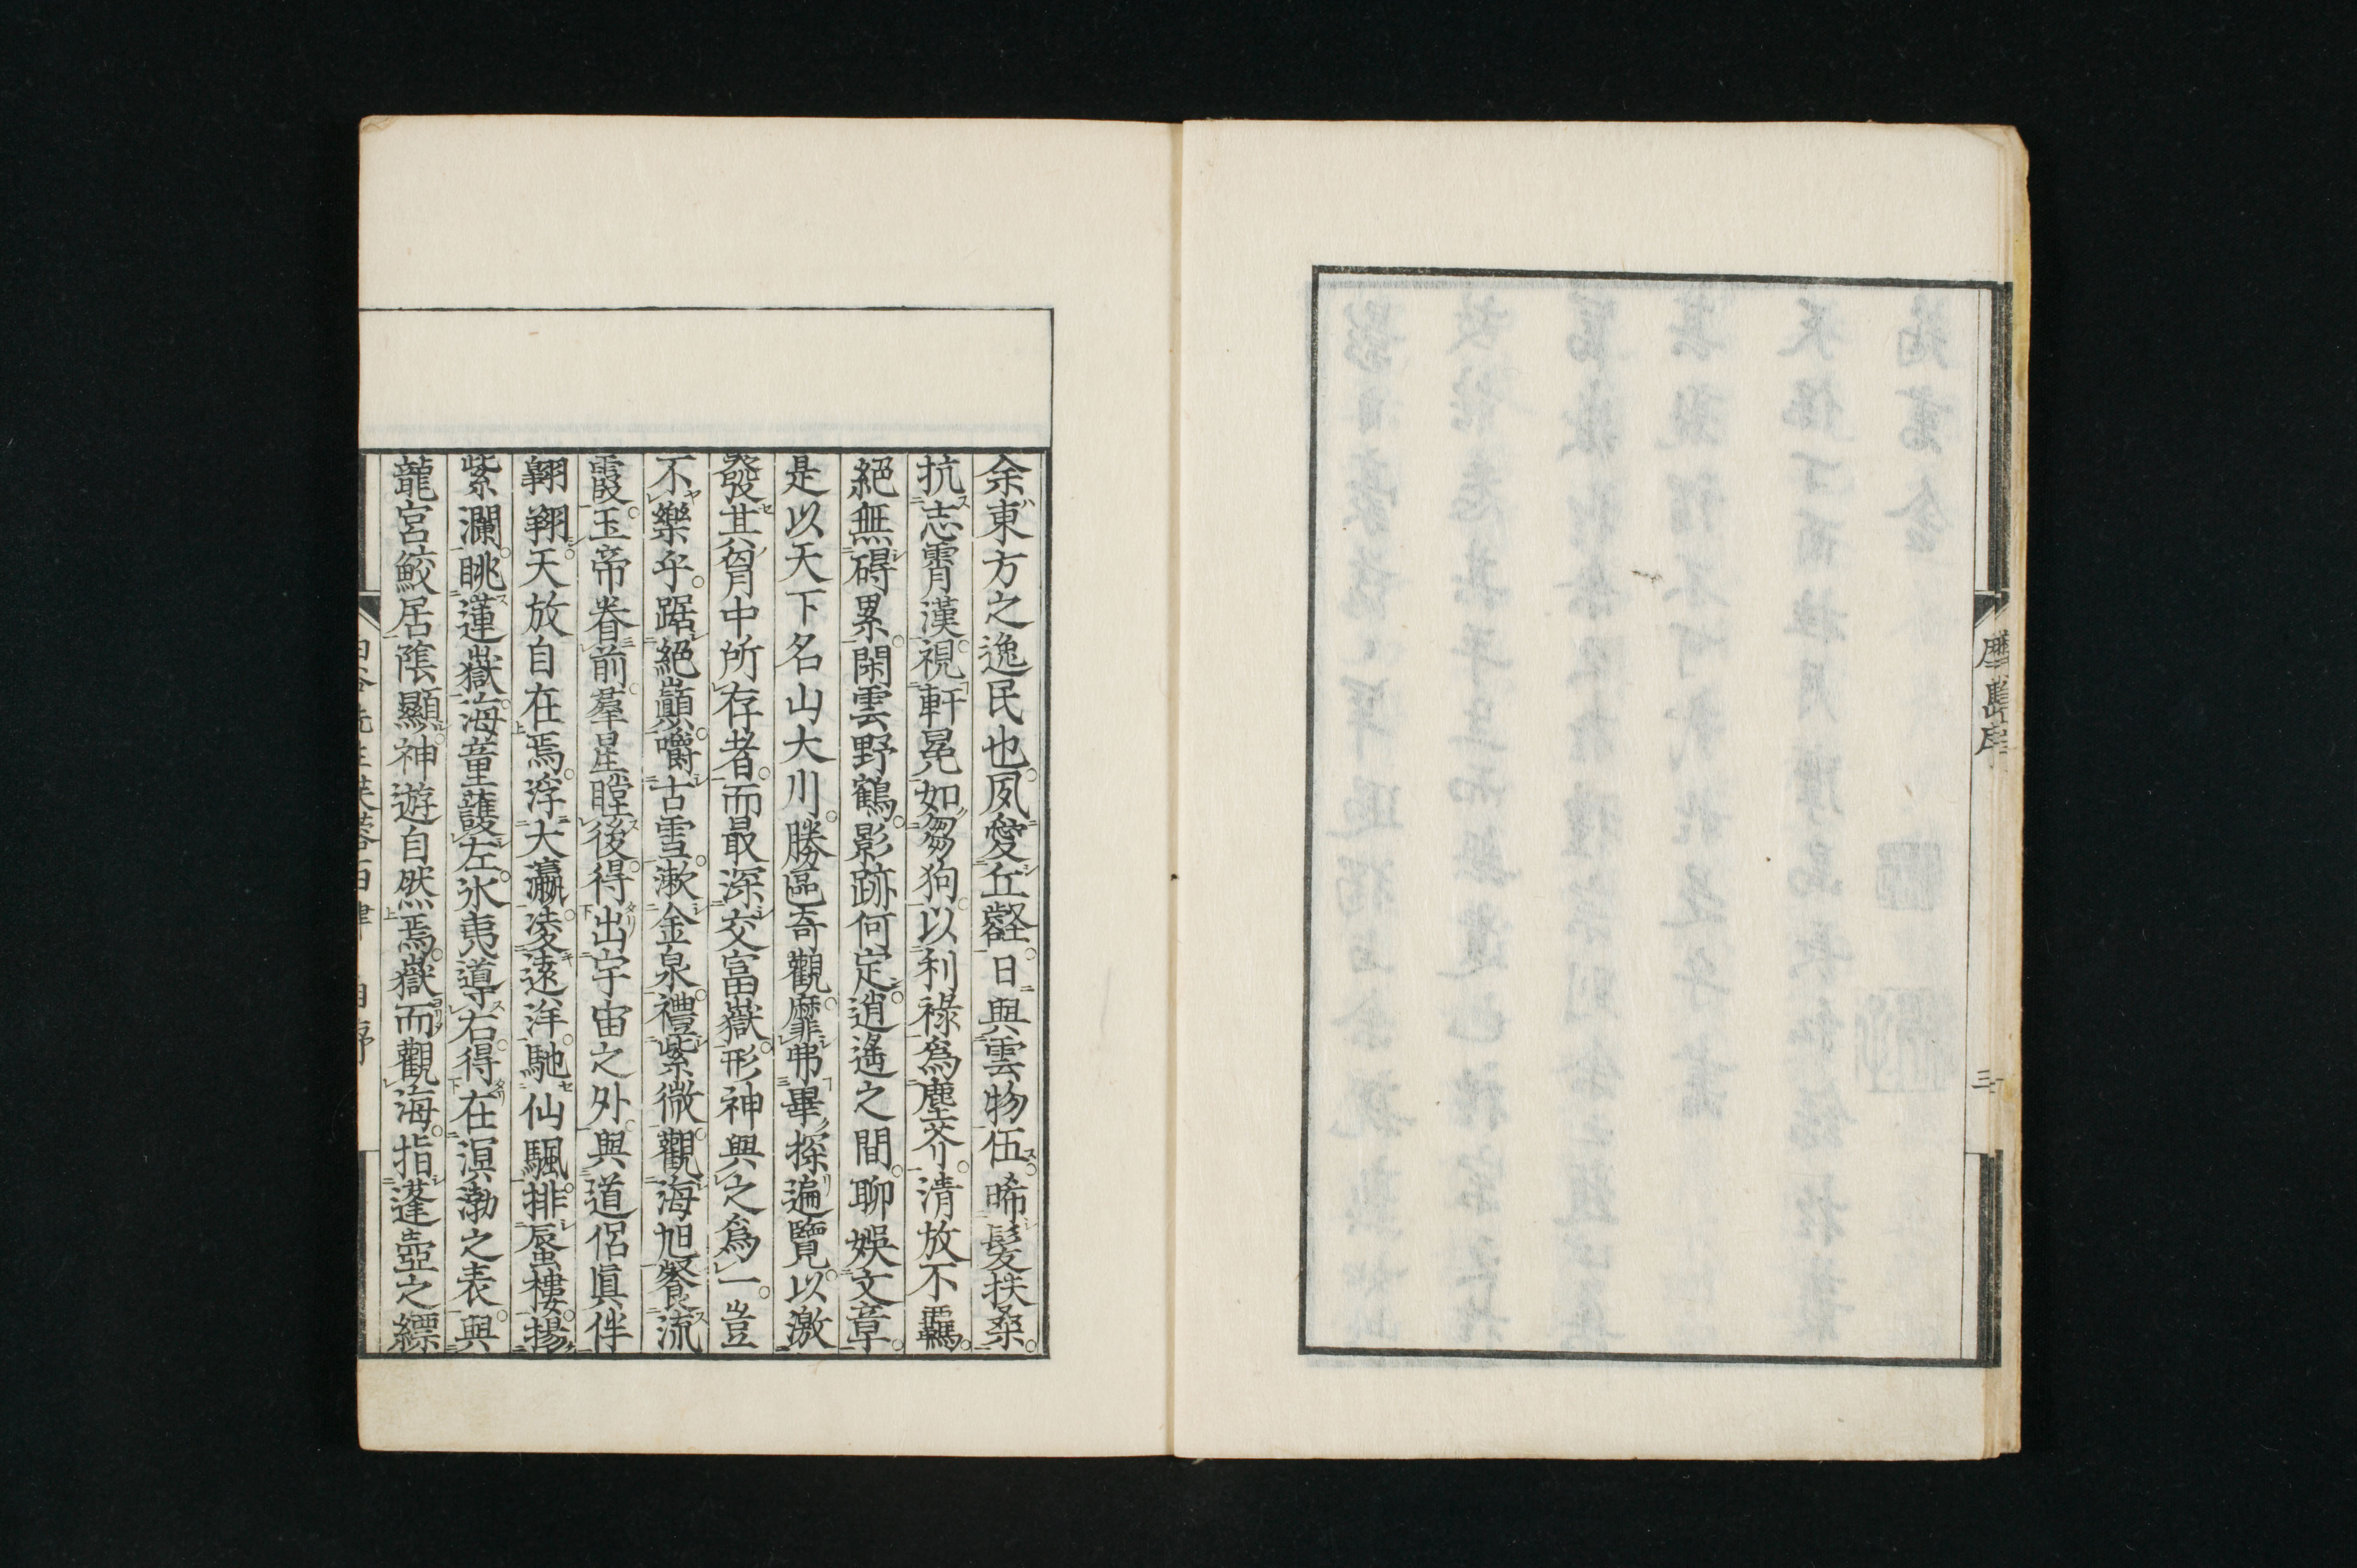 摩島序
三
余東方之逸民也夙愛丘壑日與雲物伍晞髮扶桑
抗志霄漢視軒冕如芻狗以利祿爲塵芥清放不羈
絕無碍累閑雲野鶴影跡何定逍遙之間聊娛文章
是以天下名山大川勝區奇觀靡弗畢探遍覽以激
發其胷中所存者而最深交富嶽形神與之爲一豈
不樂乎踞絕巓嚼古雪漱金泉禮紫微觀海旭餐流
霞玉帝眷前羣星瞠後得出宇宙之外與道侶眞伴
翱翔天放自在焉浮大瀛凌遠洋馳仙颿排蜃樓揚
紫瀾眺蓮嶽海童護左氷夷導右得在溟渤之表與
龍宮鮫居隂顯神遊自然焉嶽而觀海指蓬壺之縹